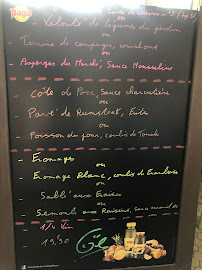 Pago
ou
- Velouté de légumes du jardin
ou
- Terrine de campagne, cornichons
ou
- Asperges du Mardi, Sauce Mousseline
- Côte de Porc, Sauce charcutière
ou
- Pavé de Rumsteak, Frites
ou
- Poisson du jour, coulis de Tomate
- Fromages
ou
- Fromage Blanc, coulis de
ou
- Sablé aux Fraises
ou
- Semoule aux Raisins, Sauce caramel
1/4 Vin
19,90